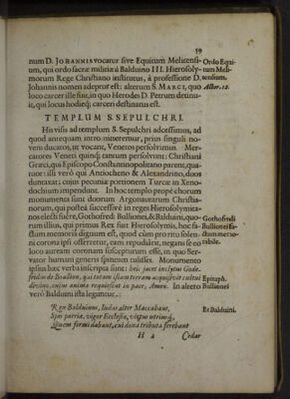 59
num D. JOHANNIS vocatur sive Equitum Melitensi-
um, qui ordo sacræ militiæ à Balduino III. Hierosoly-
morum Rege Christiano institutus, à professione D.
Johannis nomen adeptus est: alterum S. MARCI, quo
loco carcer ille fuit, in quo Herodes D. Petrum detinu-
it, qui locus hodieq; carceri destinatus est.
Ordo Equi-
tum Meli-
tensium.
Actor. 12.
TEMPLUM S. SEPULCHRI.
His visis ad templum S. Sepulchri accessimus, ad
quod antequam intro mitteremur, prius singuli no-
veni ducatos, ut vocant, Venetos persolvimus. Mer-
catores Veneti quinq; tantum persolvunt: Christiani
Græci, qui Episcopo Constantinopolitano parent, qua-
tuor: illi verò qui Antiocheno & Alexandrino, duos
duntaxat; cujus pecuniæ portionem Turcæ in Xeno-
dochium impendunt. In hoc templo propè chorum
monumenta sunt duorum Argonautarum Christia-
norum, qui postea successivè in reges Hierosolymita-
nos electi fuêre, Gothofredi Bullionei, & Balduini, quo-
rum illius, qui primus Rex fuit Hierosolymis, hoc fa-
ctum memoriâ dignum est, quod cùm pro more solen-
ni corona ipsi offerretur, eam repudiâre, negans se eo
loco auream coronam suscepturum esse, in quo Ser-
vator humani generis spineam tulisset. Monumento
ipsius hæc verba inscripta sunt: hic jacet inclytus Gode-
fridus de Boulion, qui totam istam terram acquisivit cultui
divino, cujus anima requiescat in pace, Amen. In altero
verò Balduini ista leguntur.
Gothofredi
Bullionei fa-
ctum memo-
rabile.
Epitaph.
Bullionei
Rex Balduinus, Judas alter Maccabæus,
Spes patriæ, vigor Ecclesiæ, virtus utriusq;,
Quem formidabant, cui dona tributa ferebant
Et Balduini.
H 2
Cedar